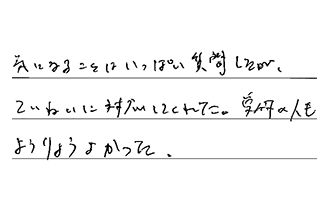 気になることはいっぱい質問したが、
ていねいに対応してくれてた。学研の人も
よりりょうよかった。